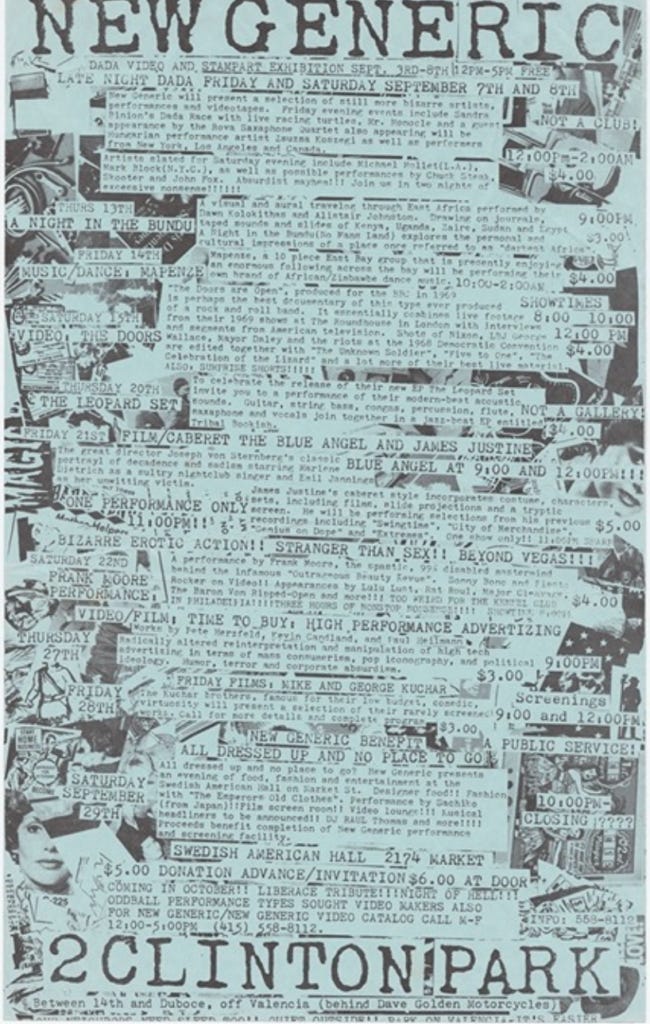 NEW GENERIC
DADA VIDEO AND STAMPART EXHIBITION SEPT. 3RD-8TH 12PM-5PM FREE
LATE NIGHT DADA FRIDAY AND SATURDAY SEPTEMBER 7TH AND 8TH
New Generic will present a selection of still more bizarre artists,
performances and videotapes. Friday evening events include Sandra
Binion's Dada Race with live racing turtles, Mr. Monocle and a guest
appearance by the Rova Saxaphone Quartet also appearing will be
Hungarian performance artist Zsuzsa Koszegi as well as performers
from New York, Los Angeles and Canada.
NOT A CLUB!
Artists slated for Saturday evening include Michael Mollett(L.A.),
Mark Block(N.Y.C.), as well as possible performances by Chuck Steak,
Skooter and John Fox. Absurdist mayhem!!! Join us in two nights of
excessive nonsense!!!!!!!
12:00PM-2:00AM
$4.00
THURS 13TH
A NIGHT IN THE BUNDU
A visual and aural travelog through East Africa performed by
Dawn Kolokithas and Alistair Johnston. Drawing on journals,
taped sounds and slides of Kenya, Uganda, Zaire, Sudan and Egypt
A Night in the Bundu(No Mans land) explores the personal and
cultural impressions of a place once referred to as "darkest Africa".
9:00PM
$3.00
FRIDAY 14TH
MUSIC/DANCE: MAPENZE
Mapenze, a 10 piece East Bay group that is presently enjoying
an enormous following across the bay will be performing their
own brand of African/Zimbabwe dance music. 10:00-2:00AM.
$4.00
SATURDAY 15TH
VIDEO: THE DOORS
"The Doors are Open", produced for the BBC in 1969
is perhaps the best documentary of this type ever produced
of a rock and roll band. It essentially combines live footage
from their 1969 shows at The Roundhouse in London with interviews
and segments from American television. Shots of Nixon, LBJ, George
Wallace, Mayor Daley and the riots at the 1968 Democratic Convention
are edited together with "The Unknown Soldier", "Five to One", "The
Celebration of the Lizard" and a lot more of their best live material
ALSO: SURPRISE SHORTS!!!!
SHOWTIMES
8:00 10:00
12:00 PM
$4.00
THURSDAY 20TH
THE LEOPARD SET
To celebrate the release of their new EP The Leopard Set
invite you to a performance of their modern-beat acoustic
sounds. Guitar, string bass, congas, percussion, flute,
saxaphone and vocals join together in a Jazz-beat EP entitled
Tribal Bookish.
NOT A GALLERY!
$4.00
FRIDAY 21ST FILM/CABERET THE BLUE ANGEL AND JAMES JUSTINE
The great director Joseph Von Sternberg's classic
portrayal of decadence and sadism starring Marlene
Dietrich as a sultry nightclub singer and Emil Jannings
as her unwitting victim.
BLUE ANGEL AT 9:00 AND 12:00PM!!!
ONE PERFORMANCE ONLY
11:00PM!!!
James Justine's caberet style incorporates costume, characters,
sets, including films, slide projections and a tryptic
screen. He will be performing selections from his previous
recordings including "Swingtime", "City of Merchandise",
"Genius on Dope" and "Extremes". One show only!! 11:00PM SHARP
$5.00
BIZARRE EROTIC ACTION!! STRANGER THAN SEX!! BEYOND VEGAS!!!
SATURDAY 22ND
FRANK MOORE
PERFORMANCE!
A performance by Frank Moore, the spastic, 99% disabled mastermind
behind the infamous "Outrageous Beauty Revue".
Rocker on Video!! Appearances by Lulu Lust, Rat Soul, Major Cleavage,
The Baron Von Ripped-Open and more!!!
$4.00
VIDEO/FILM: TIME TO BUY: HIGH PERFORMANCE ADVERTIZING
THURSDAY
27TH
Works by Pete Herzfeld, Kevin Candland, and Paul Heilmann
Radically altered reinterpretation and manipulation of high tech
advertizing in terms of mass consumerism, pop iconography, and political
ideology. Humor, terror and corporate absurdism.
9:00PM
$3.00
FRIDAY
28TH
FRIDAY FILMS: MIKE AND GEORGE KUCHAR
The Kuchar brothers, famous for their low budget, comedic,
virtuosity will present a selection of their rarely screened
works. Call for more details and complete program.
Screenings
9:00 and 12:00PM.
$3.00
NEW GENERIC BENEFIT
ALL DRESSED UP AND NO PLACE TO GO
A PUBLIC SERVICE!
SATURDAY
SEPTEMBER
29TH
All dressed up and no place to go? New Generic presents
an evening of food, fashion and entertainment at the
Swedish American Hall on Market St. Designer food!! Fashion
with "The Emperors Old Clothes". Performance by Sachiko
(from Japan)!!Film screen room!! Video lounge!!! Musical
headliners to be announced!! DJ RAUL Thomas and more!!!!
Proceeds benefit completion of New Generic performance
and screening facility.
10:00PM-
CLOSING ????
SWEDISH AMERICAN HALL 2174 MARKET
$5.00 DONATION ADVANCE/INVITATION $6.00 AT DOOR
COMING IN OCTOBER!! LIBERACE TRIBUTE!!!NIGHT OF HELL!!!
ODDBALL PERFORMANCE TYPES SOUGHT VIDEO MAKERS ALSO
FOR NEW GENERIC/NEW GENERIC VIDEO CATALOG CALL M-F
12:00-5:00PM (415) 558-8112.
INFO: 558-8112
LOVE
2 CLINTON PARK
Between 14th and Duboce, off Valencia (behind Dave Golden Motorcycles)